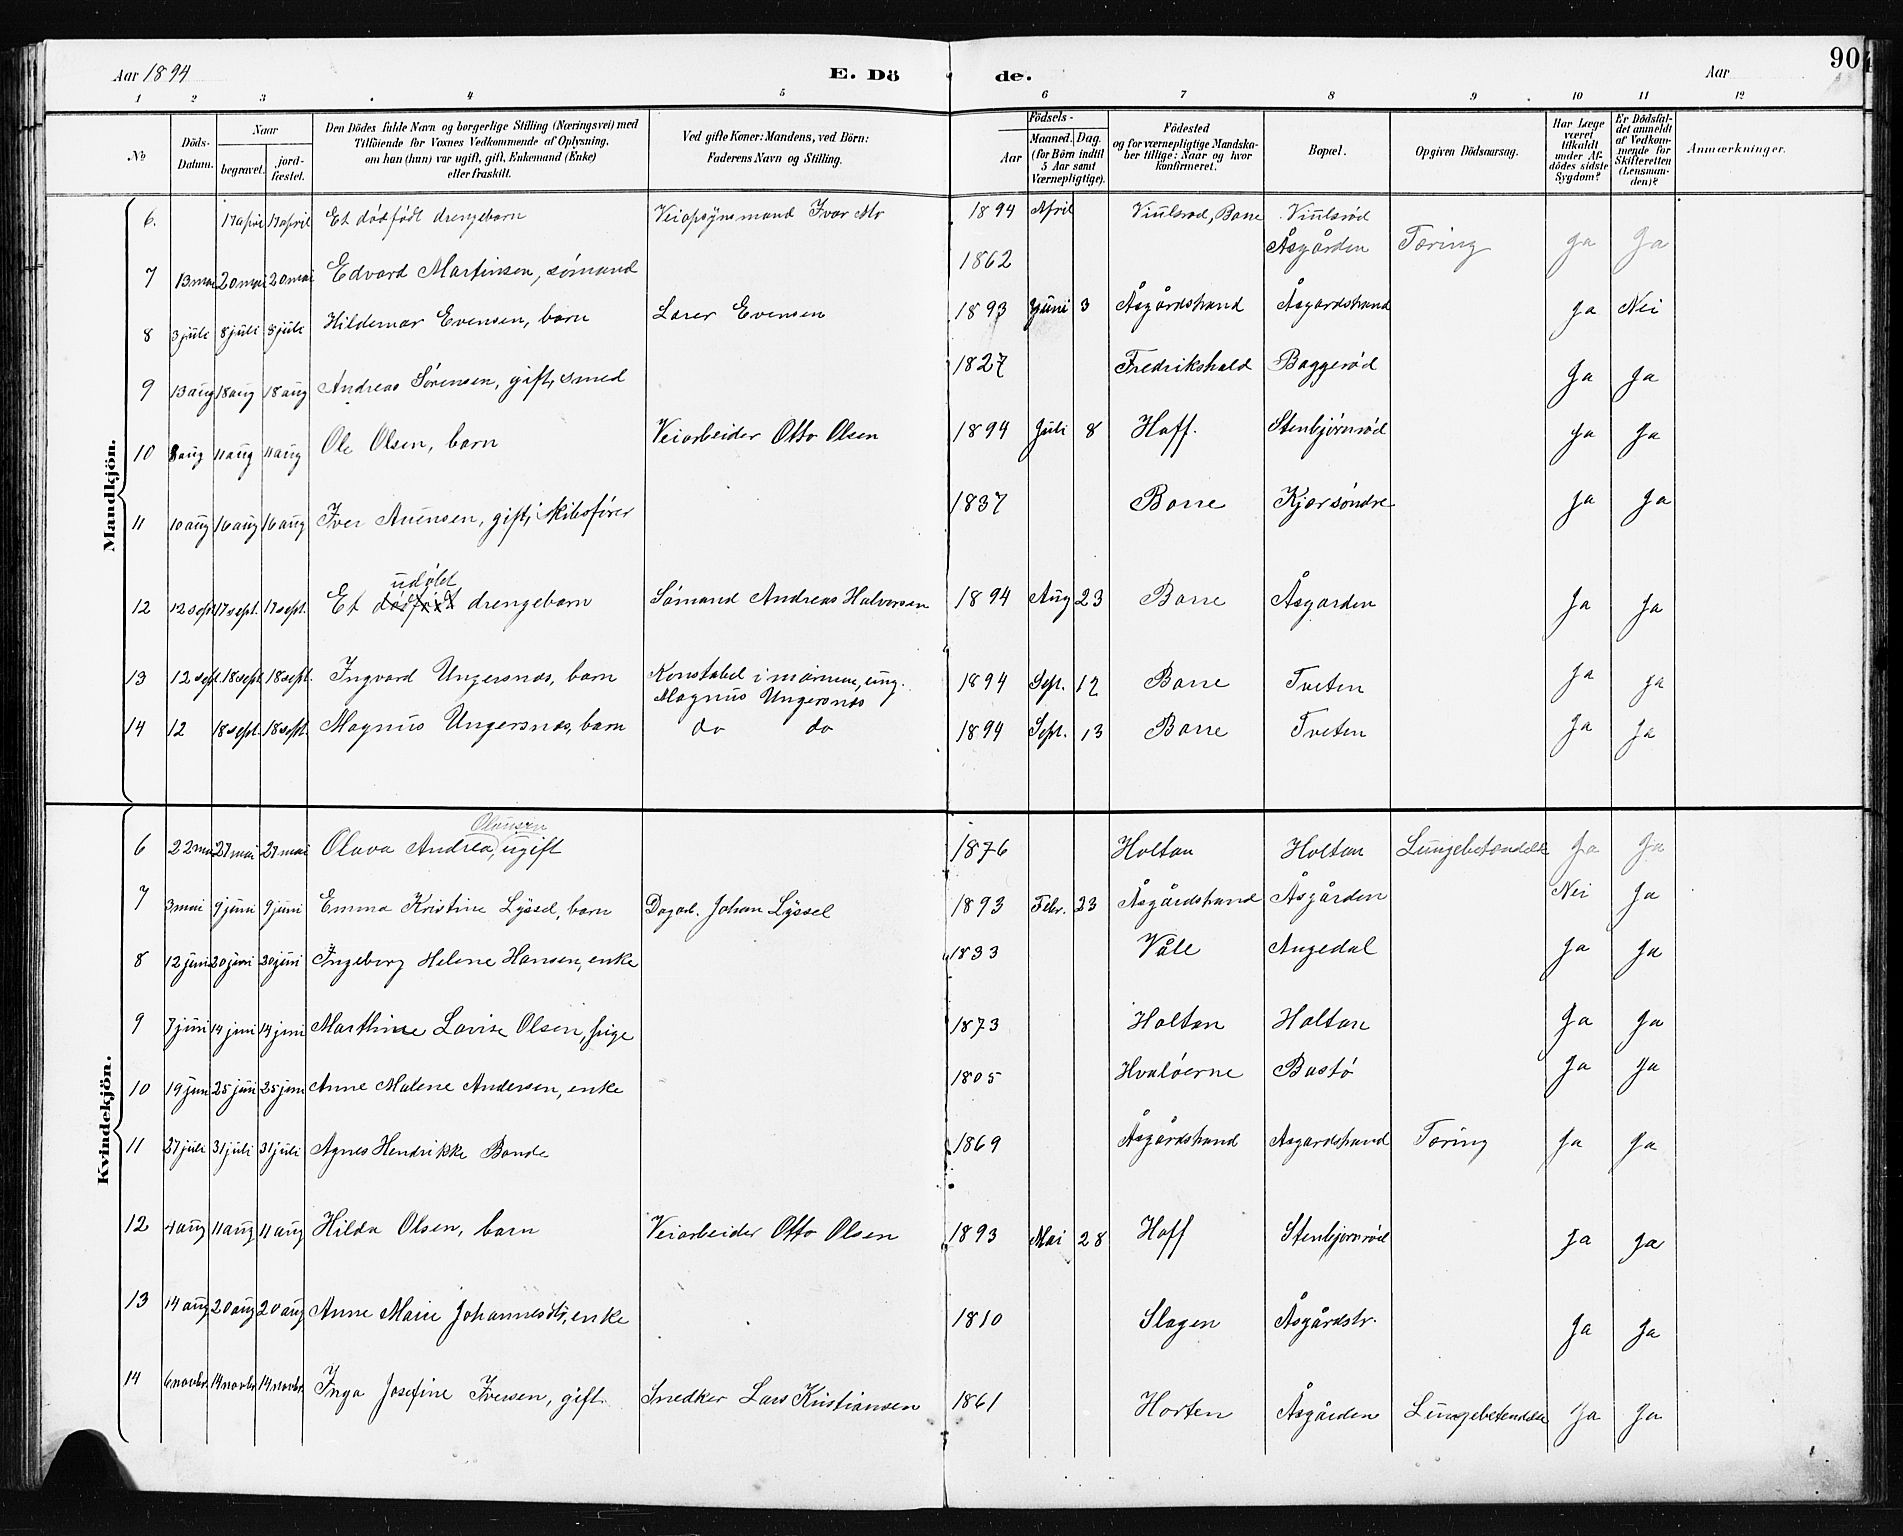 Aar 1894 E. Dö de. Aar 90
1 2 3 4 5 6 7 8 9 10 11 12
No
Döds-Datum.
Naar begravet. jordfæstet.
Den Dödes fulde Navn og borgerlige Stilling (Næringsvei) med Tilföiende for Voxnes Vedkommende af Oplysning, om han (hun) var ugift, gift, Enkemand (Enke) eller fraskilt.
Ved gifte Koner: Mandens, ved Börn: Faderens Navn og Stilling.
Födsels- Aar Maaned. Dag. (for Börn indtil 5 Aar samt Værnepligtige).
Födested og for værnepligtige Mandskaber tillige: Naar og hvor konfirmeret.
Bopæl.
Opgiven Dödsaarsag.
Har Læge været tilkaldt under Afdödes sidste Sygdom?
Er Dödsfaldet anmeldt af Vedkommende for Skifteretten (Lensmanden)?
Anmærkninger.
Mandkjön.
6. 17 april 17 april Et dödfödt drengebarn Veiopsynsmand Ivar Mo 1894 April Viulsrød, Borre Viulsrød
7 13 mai 20 mai 20 mai Edvard Martinsen, sømand 1862 Åsgården Tæring Ja Ja
8 3 juli 8 juli 8 juli Hildemar Evensen, barn Evensen 1893 Juni 3 Åsgårdstrand Åsgardstrand Ja Nei
9 13 aug 18 aug 18 aug Andreas Sørensen, gift, smed 1827 Fredrikshald Baggerød Ja Ja
10 8 aug 11 aug 11 aug Ole Olsen, barn Veiarbeider Otto Olsen 1894 Juli 8 Hoff. Stenbjørnrød Ja Ja
11 10 aug 16 aug 16 aug Iver gift, skibsfører 1837 Borre Kjær søndre Ja Ja
12 12 sept 17 sept. 17 sept. Et udøbt drengebarn Sømand Andreas Halvorsen 1894 Aug 23 Borre Åsgarden Ja Ja
13 12 sept. 18 sept 18 sept. Ingvard Ungersnæs, barn Konstabel i marinen, ung. Magnus Ungersnæs 1894 Sept. 12 Borre Tveten Ja Ja
14 12 18 sept. 18 sept. Magnus Ungersnæs, barn do do 1894 Sept. 13 Borre Tveten Ja Ja
Kvindekjön.
6 22 mai 27 mai 27 mai Olava Andrea Olausen, ugift 1876 Holtan Holtan Ja Ja
7 3 mai 9 juni 9 juni Emma Kristine Lyssel, barn Dagarb. Johan Lyssel 1893 Febr. 23 Åsgårdstrand Åsgården Nei Ja
8 12 juni 20 juni 20 juni Ingeborg Helene Hansen, enke 1833 Våle Augedal Ja Ja
9 7 juni 14 juni 14 juni Marthine Lovise Olsen, pige 1873 Holtan Holtan Ja Ja
10 19 juni 25 juni 25 juni Anne Malene Andersen, enke 1805 Hvaløerne Bastø Ja Ja
11 27 juli 31 juli 31 juli Agnes Hendrikke Bonde 1869 Åsgårdstrand Åsgardstrand Tæring Ja Ja
12 4 aug 11 aug 11 aug Hilda Olsen, barn Veiarbeider Otto Olsen 1893 Mai 28 Hoff Stenbjørnrød Ja Ja
13 14 aug 20 aug 20 aug Anne Marie Johannesdtr, enke 1810 Slagen Åsgårdstr. Ja Ja
14 6 novbr. 14 novbr 14 novbr. Inga Josefine Iversen, gift. Snedker Lars Kristiansen 1861 Horten Åsgården Ja Ja